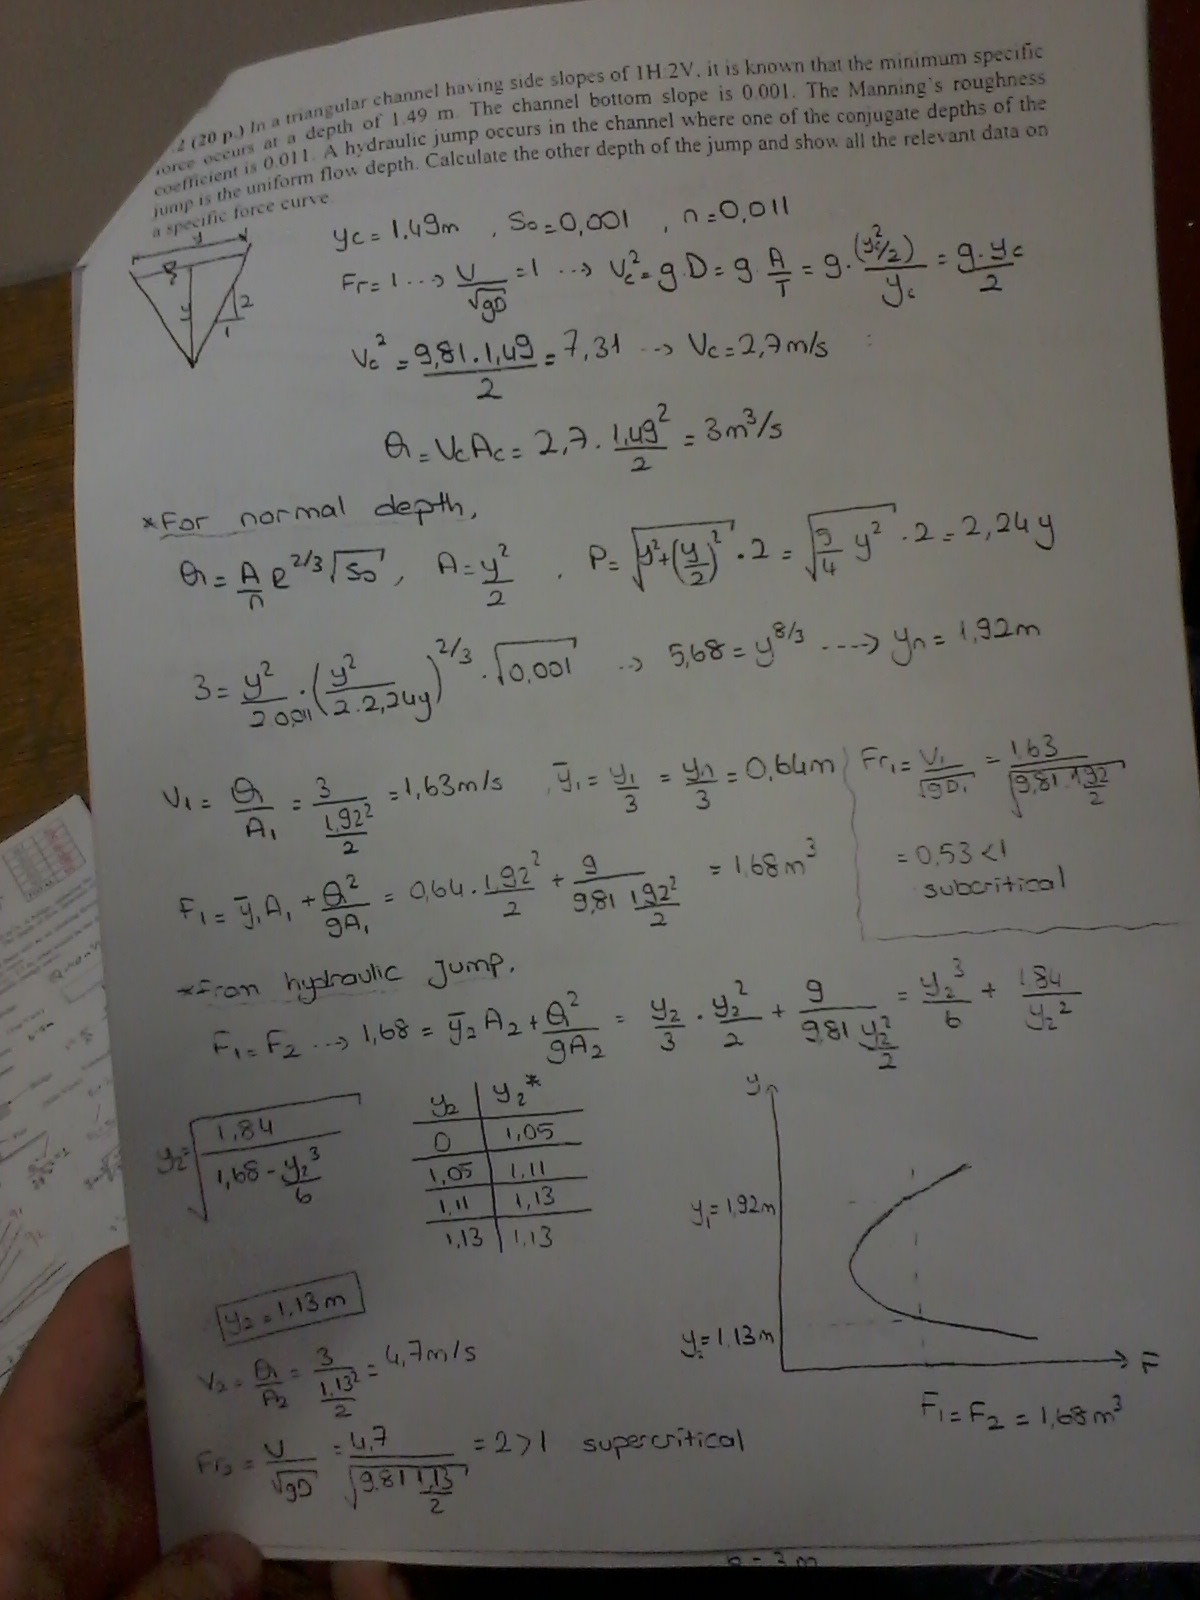 .2 (20 p.) In a triangular channel having side slopes of 1H:2V, it is known that the minimum specific
force occurs at a depth of 1.49 m. The channel bottom slope is 0.001. The Manning's roughness
coefficient is 0.011. A hydraulic jump occurs in the channel where one of the conjugate depths of the
jump is the uniform flow depth. Calculate the other depth of the jump and show all the relevant data on
a specific force curve.
yc = 1.49m , So=0,001 , n=0,011
y
y
2
1
Fr=1 --→ V/√gD =1 --→ Vc²=g.D=g.A/T=g.(yc²/2)/yc=g.yc/2
Vc²=9,81.1,49/2=7,31 --→ Vc=2,7m/s
Q=VcAc=2,7.1,49²/2=3m³/s
*For normal depth,
Q=A/n R^2/3 √So , A=y²/2 , P=√y²+(y/2)² .2=√5/4 y² .2=2,24y
3=y²/2 0,011.(y²/2.2,24y)^2/3.√0,001 --→ 5,68=y^8/3 ----→ yn=1,92m
V1=Q/A1=3/(1,92²/2)=1,63m/s , ȳ1=y1/3=yn/3=0,64m
Fr1=V1/√gD1=1,63/√9,81.1,92/2
=0,53<1
subcritical
F1=ȳ1A1+Q²/gA1=0,64.1,92²/2+9/(9,81 1,92²/2)=1,68m³
*From hydraulic jump,
F1=F2 --→ 1,68=ȳ2A2+Q²/gA2=y2/3.y2²/2+9/(9,81 y2²/2)=y2³/6+1,84/y2²
y2=√1,84/(1,68-y2³/6)
y2 y2*
0 1,05
1,05 1,11
1,11 1,13
1,13 1,13
y2=1,13m
V2=Q/A2=3/(1,13²/2)=4,7m/s
Fr2=V/√gD=4,7/√9,81 1,13/2=2>1 supercritical
y
y1=1,92m
y2=1,13m
F
F1=F2=1,68m³